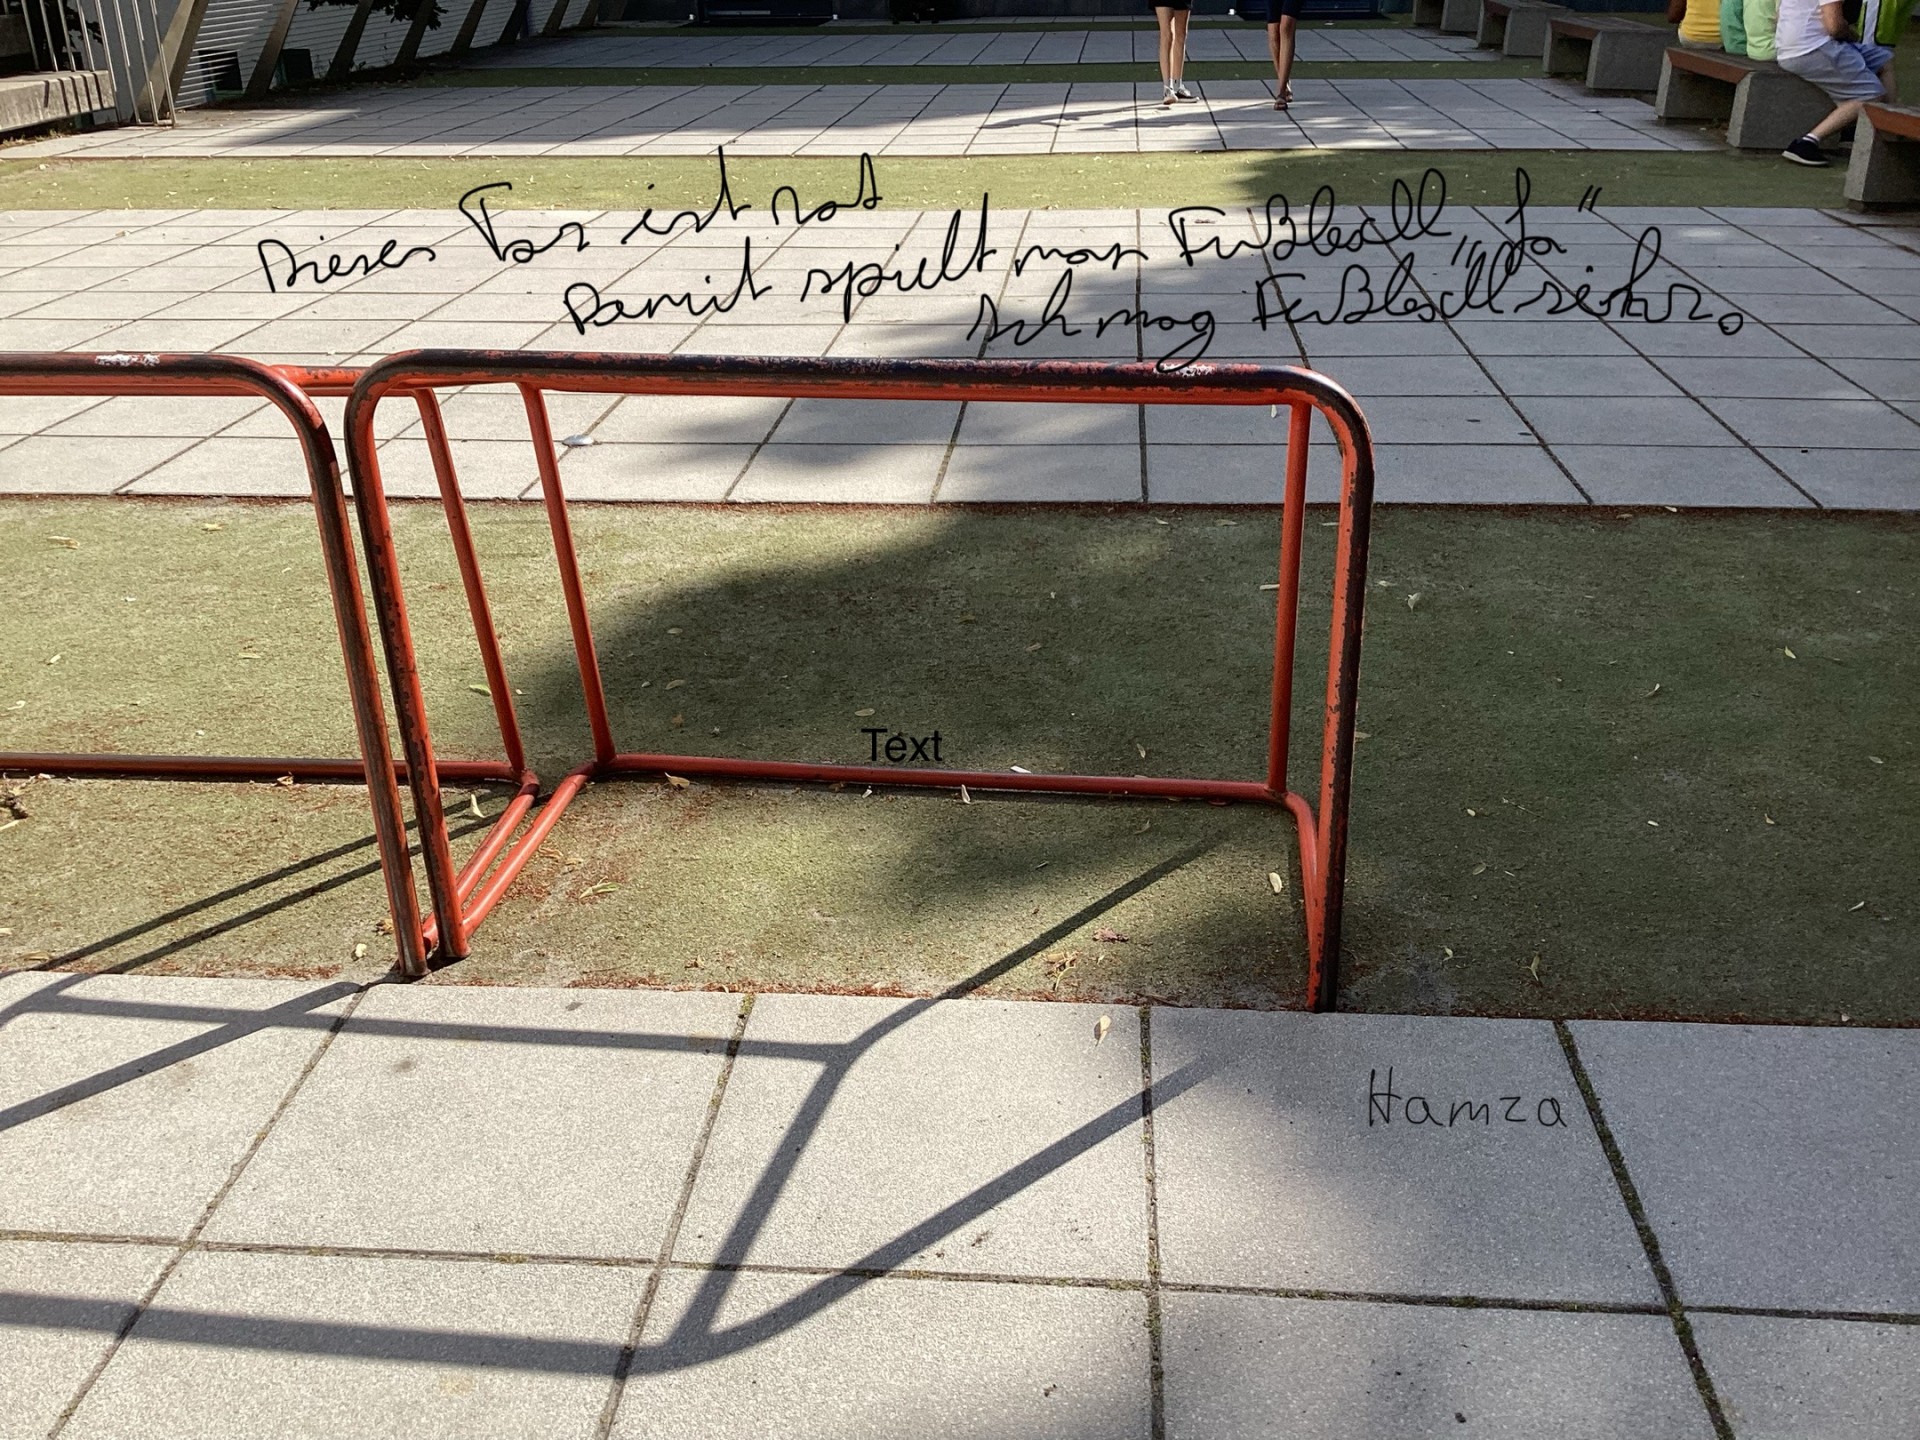 Dieses Tor ist rot
Damit spielt man Fußball „Ja“
Ich mag Fußball sehr.
Text
Hamza